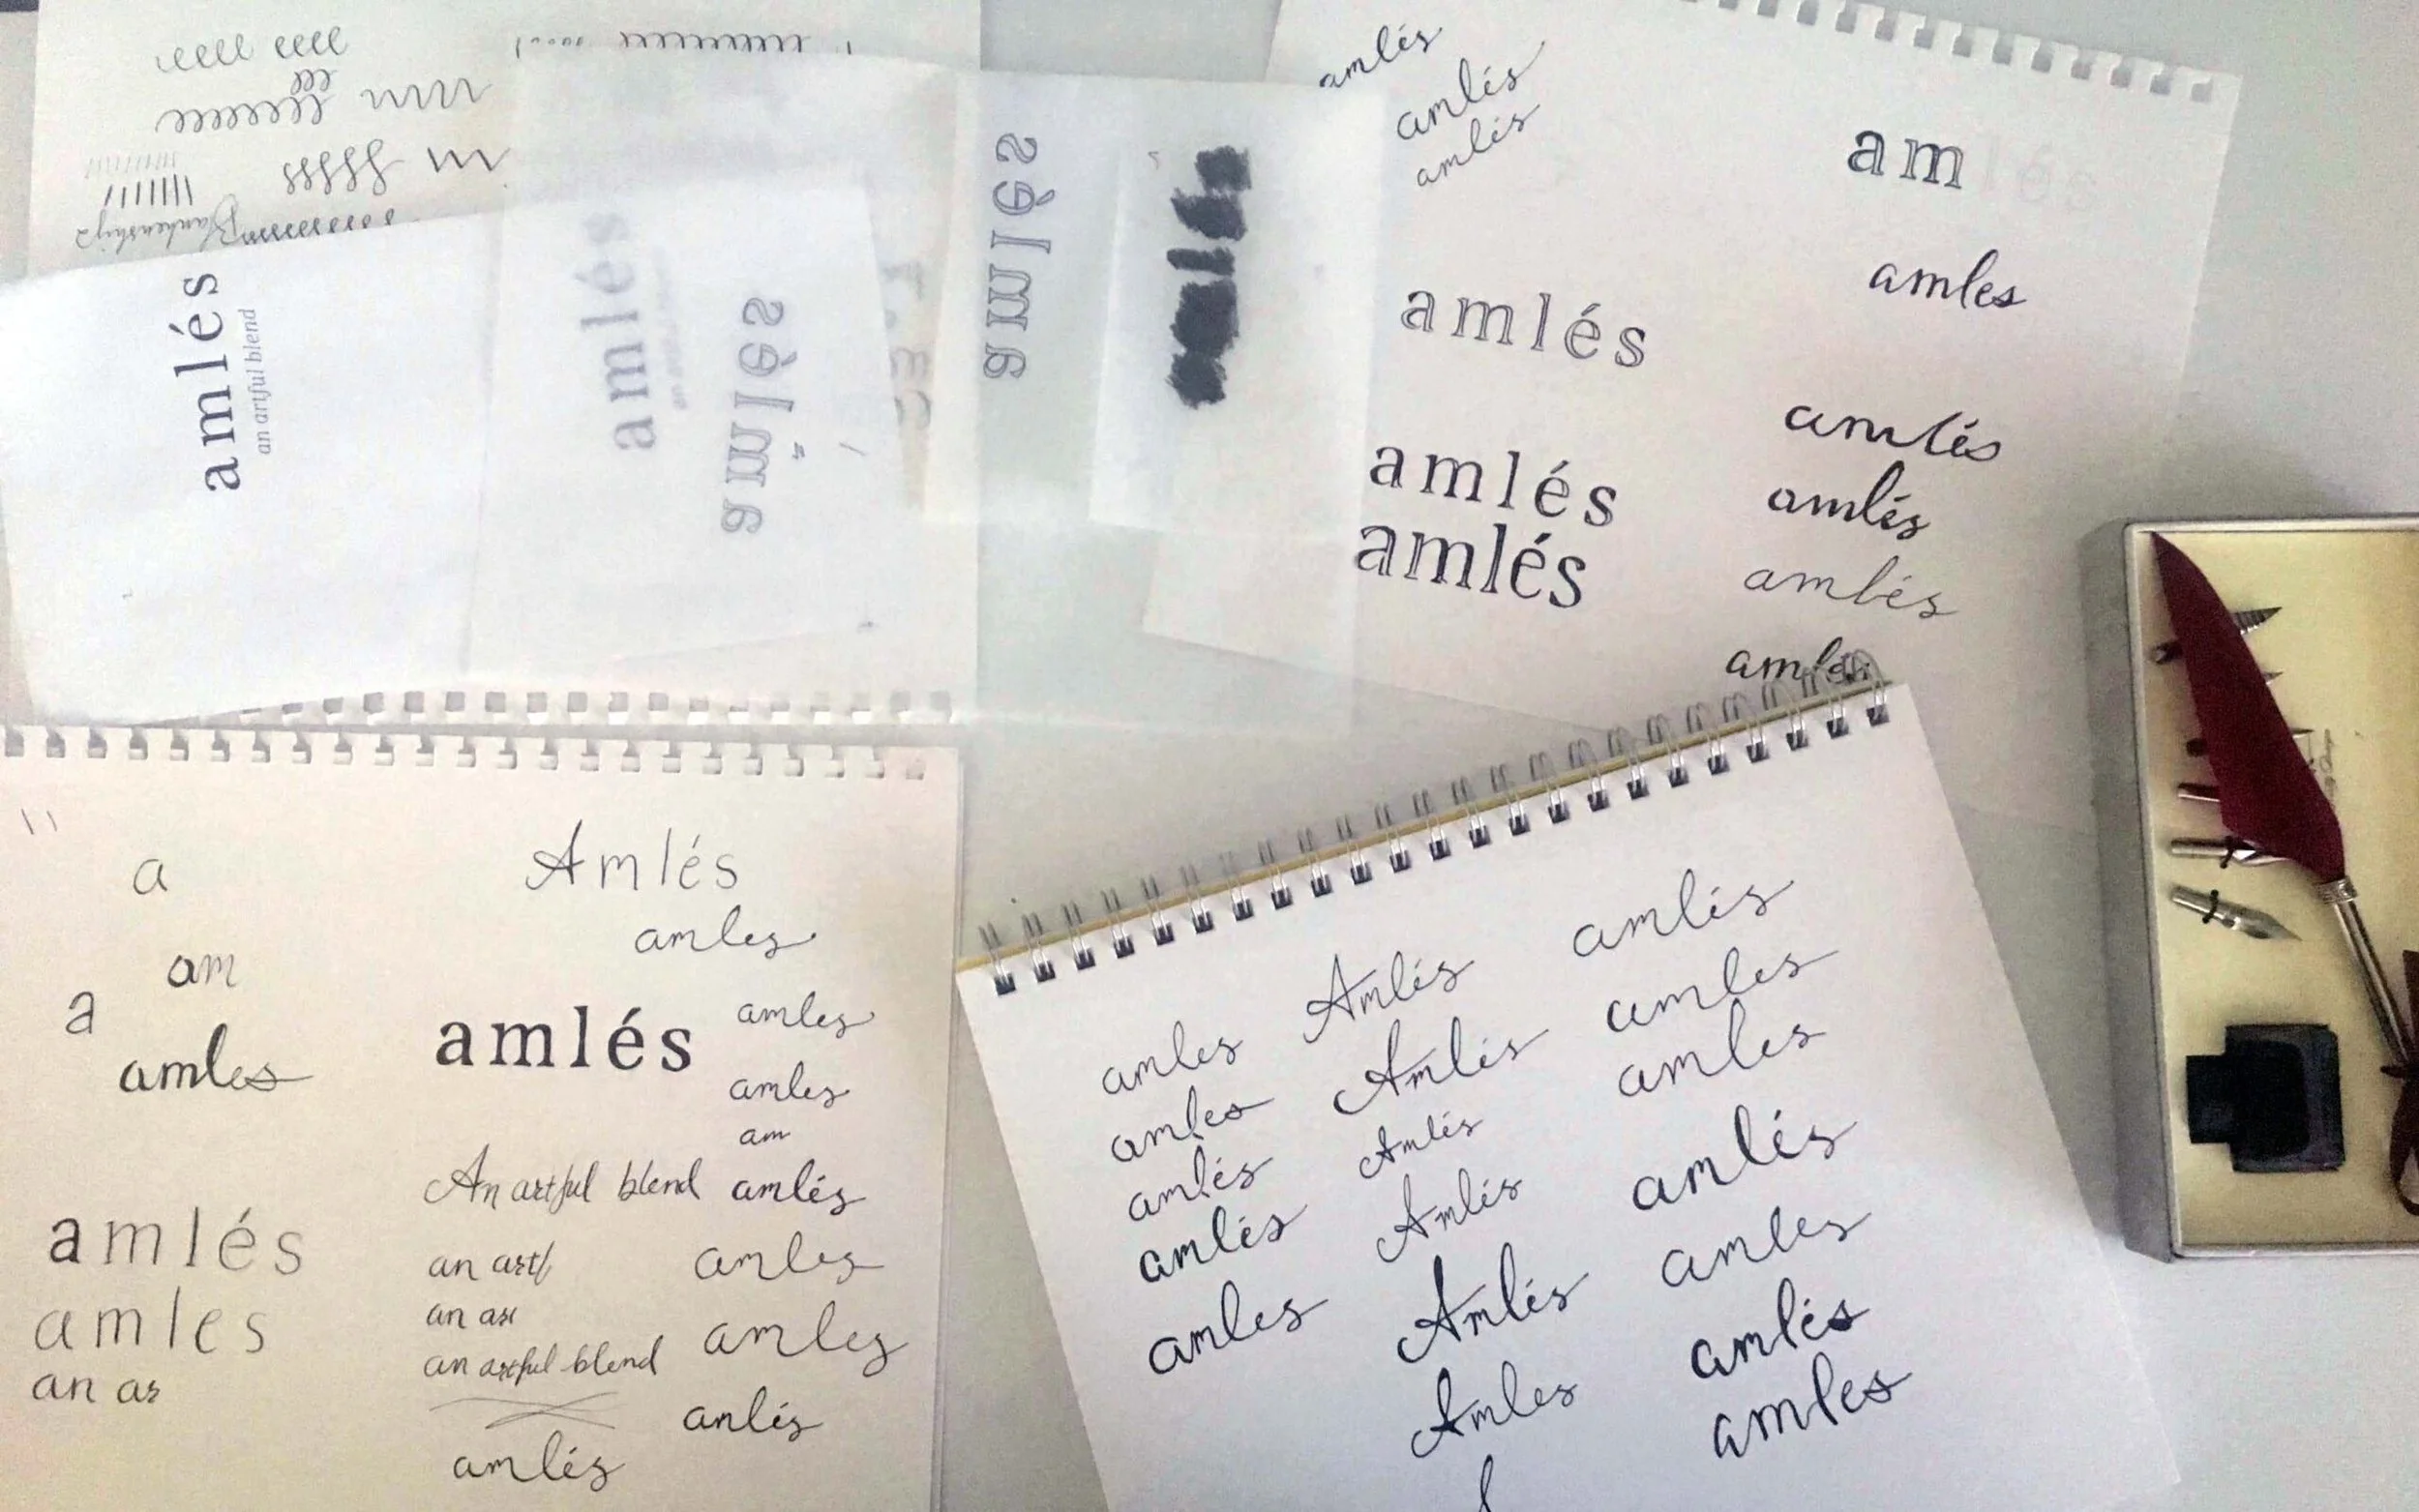 amlés
an artful blend
amlés
amlés
amlés
amlés
amlés
amlés
am
amles
amlés
amlés
amlés
amlés
amlés
amlés
a
am
a
amles
amlés
amles
an ar
Amlés
amles
amlés
amles
amles
am
An artful blend
amlés
an artf
amles
an ar
amles
an artful blend
anlés
amlés
amles
amles
amlés
amlés
amles
Amlés
Amlés
Amlés
Amlés
Amlés
Amles
amlés
amles
amles
amlés
amles
amlés
amles